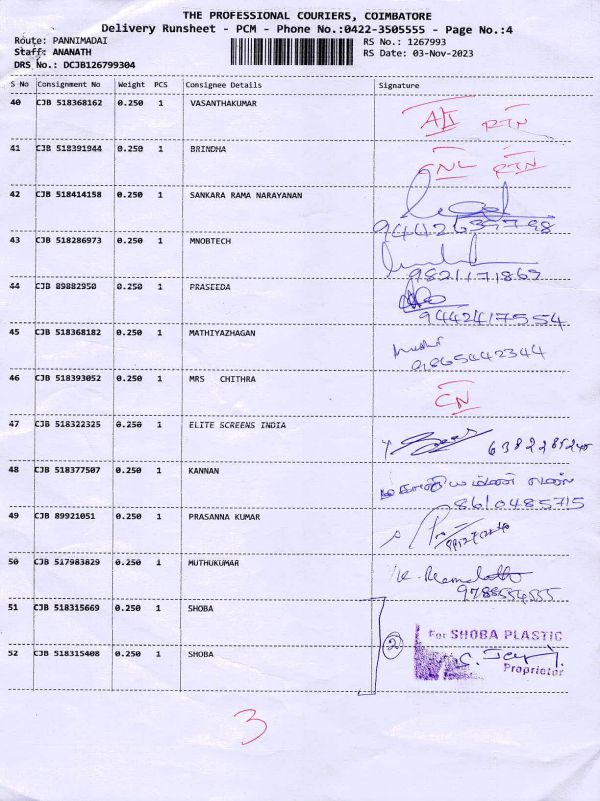 THE PROFESSIONAL COURIERS, COIMBATORE
Delivery Runsheet - PCM - Phone No.:0422-3505555 - Page No.:4
Route: PANNIMADAI RS No.: 1267993
Staff: ANANATH RS Date: 03-Nov-2023
DRS No.: DCJB126799304
S No Consignment No Weight PCS Consignee Details Signature
40 CJB 518368162 0.250 1 VASANTHAKUMAR RTN
41 CJB 518391944 0.250 1 BRINDHA RTN
42 CJB 518414158 0.250 1 SANKARA RAMA NARAYANAN
43 CJB 518286973 0.250 1 MNOBTECH
9821171867
44 CJB 89882950 0.250 1 PRASEEDA
9442417554
45 CJB 518368182 0.250 1 MATHIYAZHAGAN
9865442344
46 CJB 518393052 0.250 1 MRS CHITHRA
CN
47 CJB 518322325 0.250 1 ELITE SCREENS INDIA
48 CJB 518377507 0.250 1 KANNAN
8610485715
49 CJB 89921051 0.250 1 PRASANNA KUMAR
50 CJB 517983829 0.250 1 MUTHUKUMAR
51 CJB 518315669 0.250 1 SHOBA
For SHOBA PLASTIC
2
52 CJB 518315408 0.250 1 SHOBA
Proprietor
3